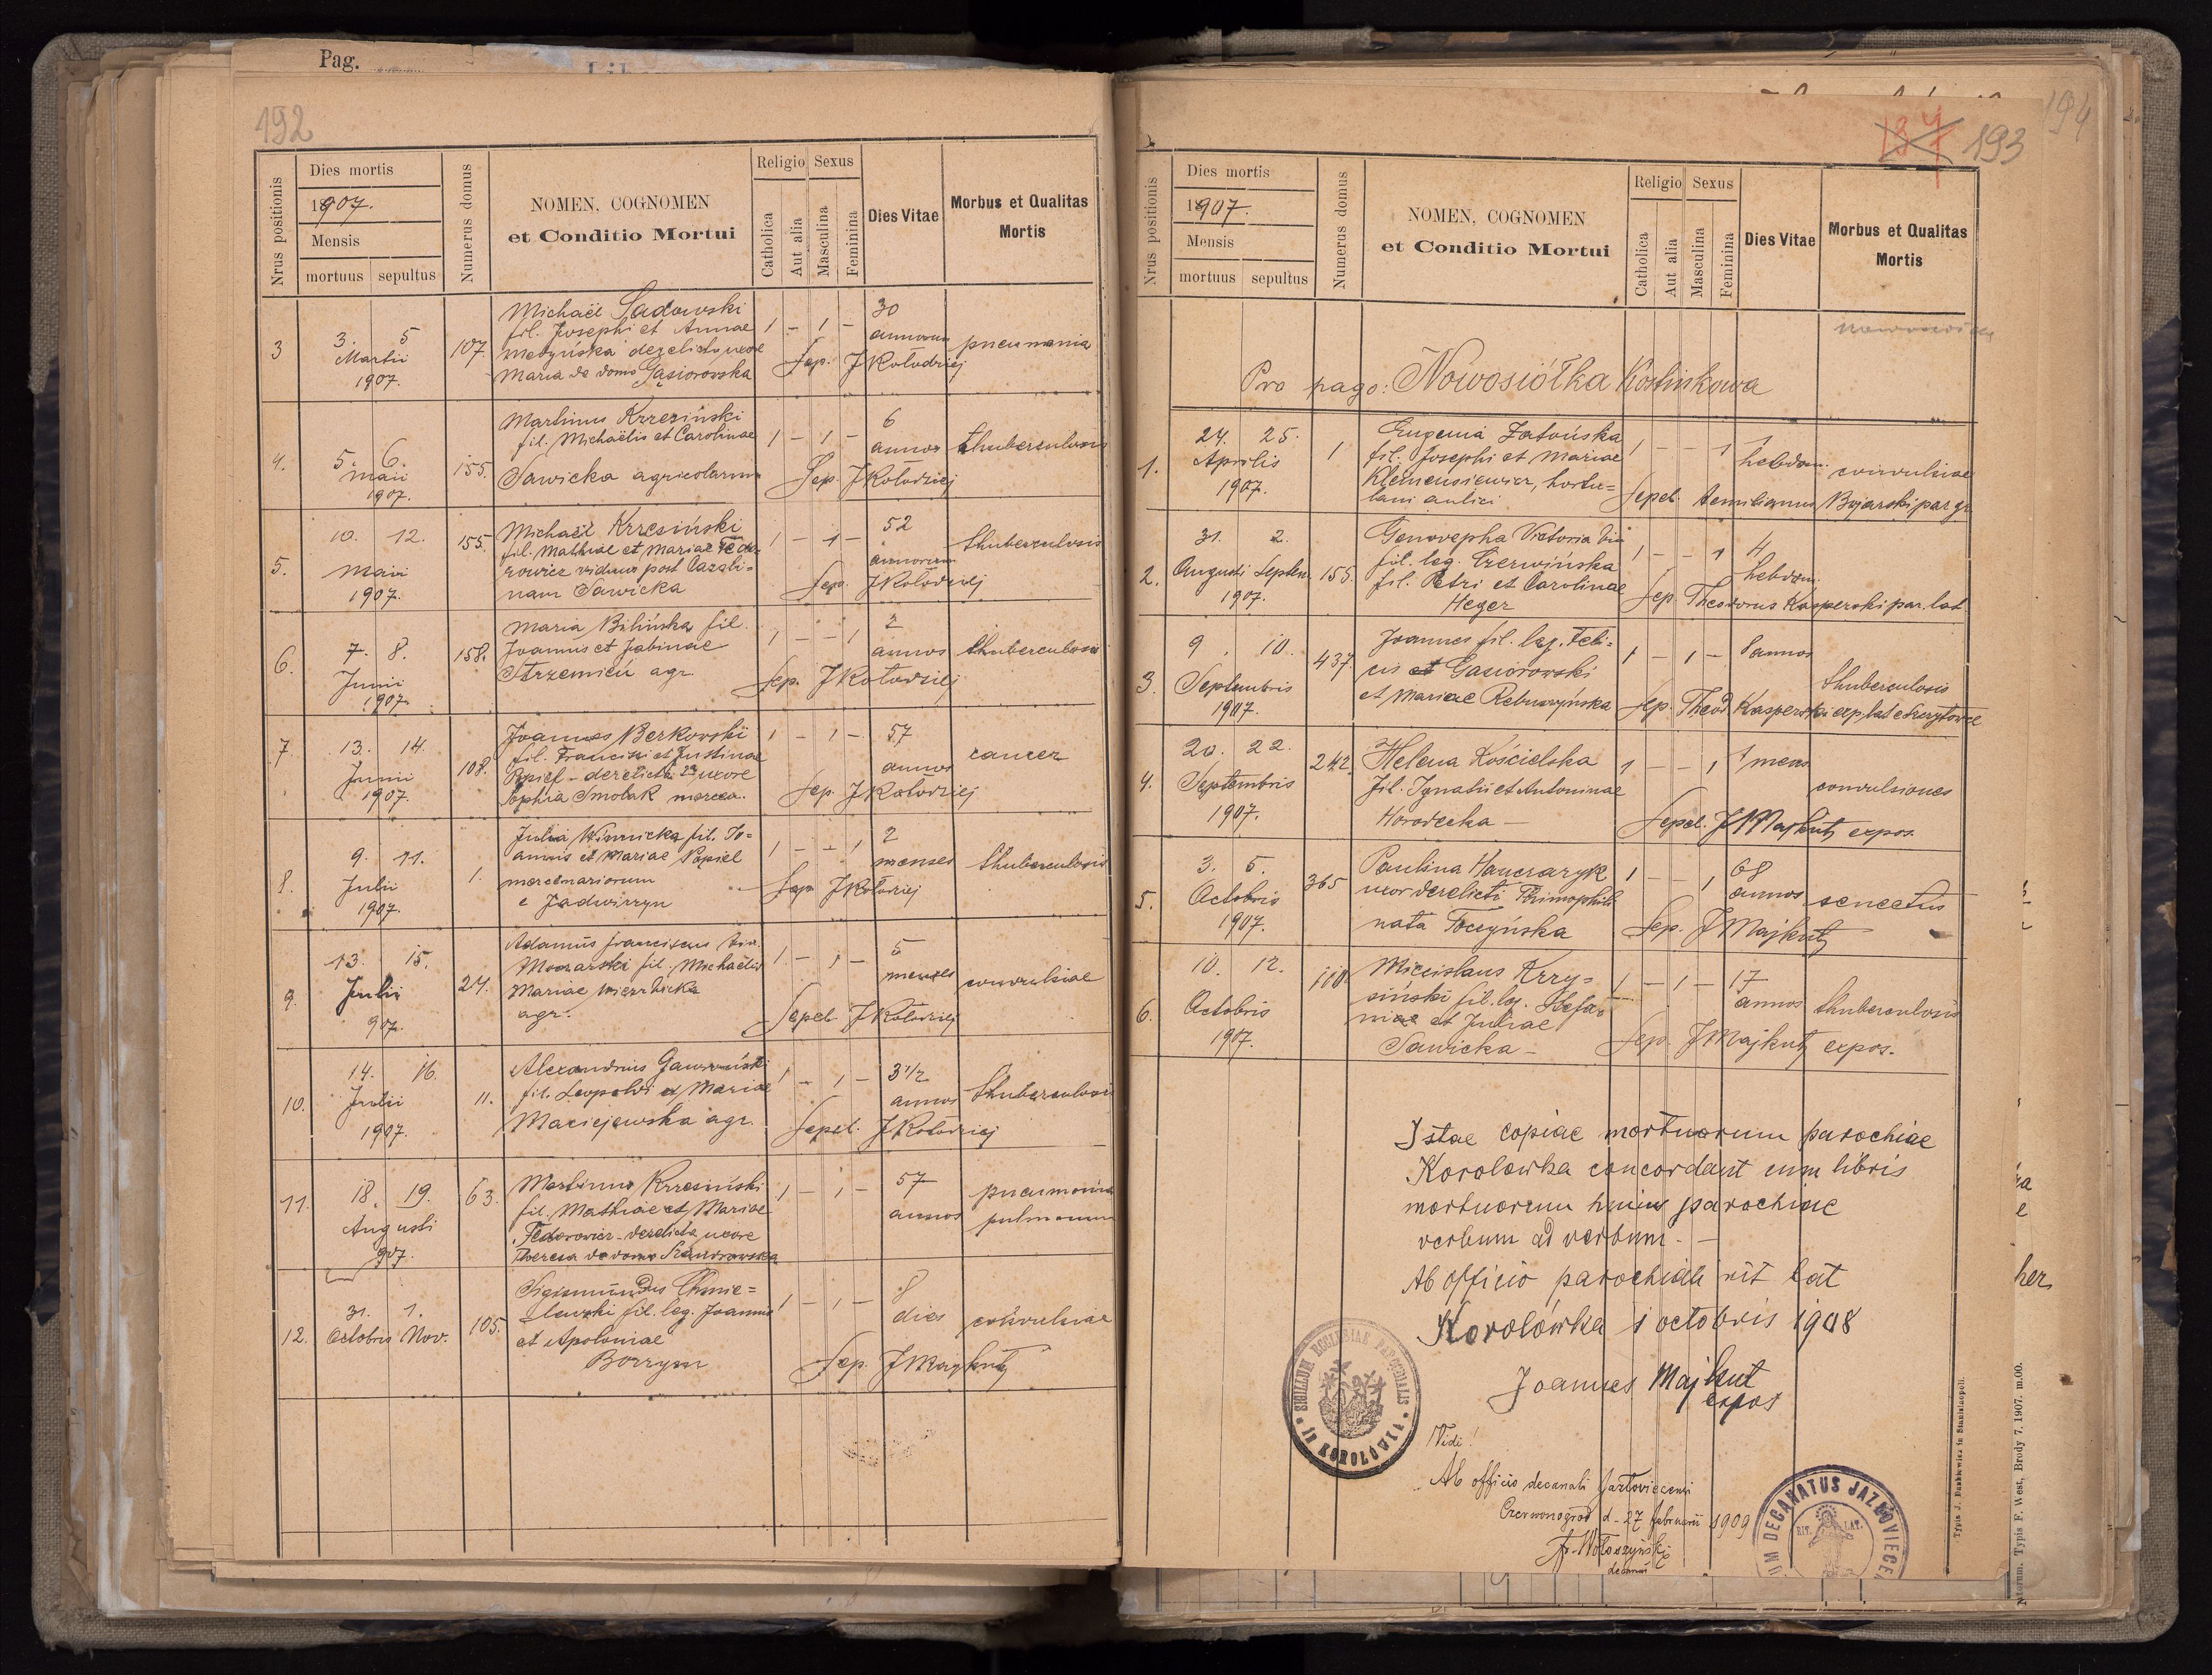 Pag.
192
Nrus positionis
Dies mortis
1907.
Mensis
mortuus sepultus
Numerus domus
NOMEN, COGNOMEN
et Conditio Mortui
Religio Sexus
Catholica
Aut alia
Masculina
Feminina
Dies Vitae
Morbus et Qualitas
Mortis
3
3. 5
Martii
1907.
107.
Michaël Sadowski
fil. Josephi et Annae
derelicta uxore
Maria de domo Gąsiorowska
1 - 1 -
30
annorum
pneumonia
Sep. JKołodziej
4.
5. 6.
Maii
1907.
155.
Martinus Krzesiński
fil. Michaëlis et Carolinae
Sawicka agricolarum
1 - 1 -
6
annos
thuberculosis
Sep. JKołodziej
5.
10. 12.
Maii
1907.
155.
Michaël Krzesiński
fil. Mathiae et Mariae Fedo-
rowicz viduus post
nam Sawicka
1 - 1 -
52
annorum
thuberculosis
Sep. JKołodziej
6.
7. 8.
Junii
1907.
158.
Maria Bilińska fil.
Joannis et Sabinae
Strzemień agr.
1 - - 1
2
annos
thuberculosis
Sep. JKołodziej
7
13. 14.
Junii
1907.
108.
Joannes Berkowski
fil. Francisci et Justinae
Popiel - derelicta 2a uxore
Sophia Smolak
1 - 1 -
57
annos
cancer
Sep. JKołodziej
8.
9. 11.
Julii
1907.
1.
Julia Winnicka fil. Jo=
annis et Mariae Popiel
mercenariorum
e Jadwizyn
1 - - 1
2
menses
thuberculosis
Sep. JKołodziej
9.
13. 15.
Julii
907.
24.
Adamus Franciscus bin.
fil. Michaëlis
Mariae Wierzbicka
agr.
1 - 1 -
5
menses
convulsiae
Sepel. JKołodziej
10.
14. 16.
Julii
1907.
11.
Alexandrius Gawroński
fil. Leopoldi et Mariae
Maciejewska agr.
1 - 1 -
3 1/2
annos
thuberculosis
Sepel. JKołodziej
11.
18. 19.
Augusti
907.
63.
Martinus Krzesiński
fil. Mathiae et Mariae
Fedorowicz - derelicta uxore
Theresa de domo
1 - 1 -
57
annos
pneumonia
pulmonum
12.
31. 1.
Octobris Nov.
105.
Sigismundus Chmie=
lewski fil. leg. Joannis
et Apoloniae
Borzym
1 - 1 -
8
dies
convulsiae
Sep. JMajkut
137 193
194
Nrus positionis
Dies mortis
1907.
Mensis
mortuus sepultus
Numerus domus
NOMEN, COGNOMEN
et Conditio Mortui
Religio Sexus
Catholica
Aut alia
Masculina
Feminina
Dies Vitae
Morbus et Qualitas
Mortis
Pro pago: Nowosiółka Kostiukowa
1.
24. 25.
Aprilis
1907.
1
Eugenia Zatońska
fil. Josephi et Mariae
Klemensiewicz, hortu=
lani aulici
1 - - 1
1 hebdom.
convulsiae
Sepel. Aemilianus Bojarski par gr.
2.
31. 2.
Augusti Septem.
1907.
155.
Genovepha Victoria bin
fil. leg. Czerwińska
fil. Petri et Carolinae
Heger
1 - - 1
4
hebdom.
Sep. Theodorus Kasperski par. lat.
3.
9. 10.
Septembris
1907.
437.
Joannes fil. leg. Feli=
cis et Gasiorowski
et Mariae
1 - 1 -
8 annos
thuberculosis
Sep. Theod Kasperski
4.
20. 22.
Septembris
1907.
242.
Helena Kościelska
fil. Ignatii et Antoninae
Horodecka -
1 - - 1
1 mens
convulsiones
Sepel. JMajkut expos.
5.
3. 5.
Octobris
1907.
365
Paulina Hanczaryk
uxor derelicti
nata Toczyńska
1 - - 1
68
annos
senectus
Sep. JMajkut
6.
10. 12.
Octobris
1907.
110.
Miecislaus Krzy=
siński fil. lg. Stefa-
niae et Juliae
Sawicka -
1 - 1 -
17
annos
thuberculosis
Sep. JMajkut expos.
Istae copiae mortuorum parochiae
Korolowka concordant cum libris
mortuorum huius parochiae
verbum ad verbum. -
Ab officio parochiali rit lat
Korolówka 1 octobris 1908
Joannes Majkut
expos
SIGILLUM ECCLESIAE PAROCHIALIS IN KOROLÓWKA
Vidi!
Ab officio decanali Jazłoviecensi
Czerwonogród d. 27 februarii 1909
Fr. Wołoszyński
decanus
DECANATUS JAZŁOVIECE
RIT. LAT.
Typis J. Dankiewicz in Stanislaopoli.
Typis F. West, Brody 7, 1907. m.00.